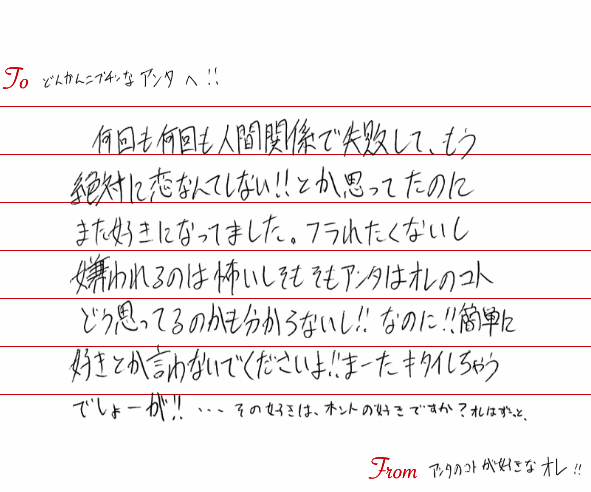 To どんかんニブチンなアンタへ!!
何回も何回も人間関係で失敗して、もう
絶対に恋なんてしない!!とか思ってたのに
また好きになってました。フラれたくないし
嫌われるのは怖いしそもそもアンタはオレのコト
どう思ってるのかも分からないし!!なのに!!簡単に
好きとか言わないでくださいよ!!まーたキタイしちゃう
でしょーが!!…その好きは、ホントの好きですか?オレはずーっと、
From アンタのコトが好きなオレ!!